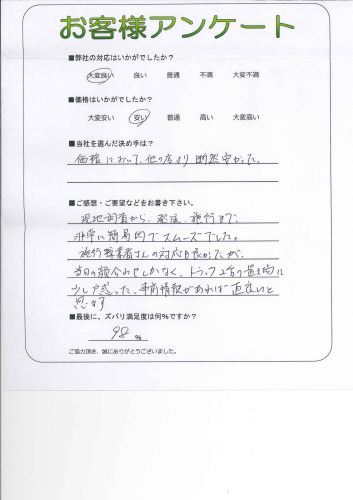 お客様アンケート
■弊社の対応はいかがでしたか？
大変良い 良い 普通 不満 大変不満
■価格はいかがでしたか？
大変安い 安い 普通 高い 大変高い
■当社を選んだ決め手は？
価格において、他の店より断然安かった。
■ご感想・ご要望などをお書き下さい。
現地調査から、発注、施行まで、
非常に簡易的でスムーズでした。
施行業者さんの対応も良かったが、
当日の顔合わせしかなく、トラック2台の置き場に
少し戸惑った、事前情報があれば直良いと
思います
■最後に、ズバリ満足度は何％ですか？
98 %
ご協力頂き、誠にありがとうございました。